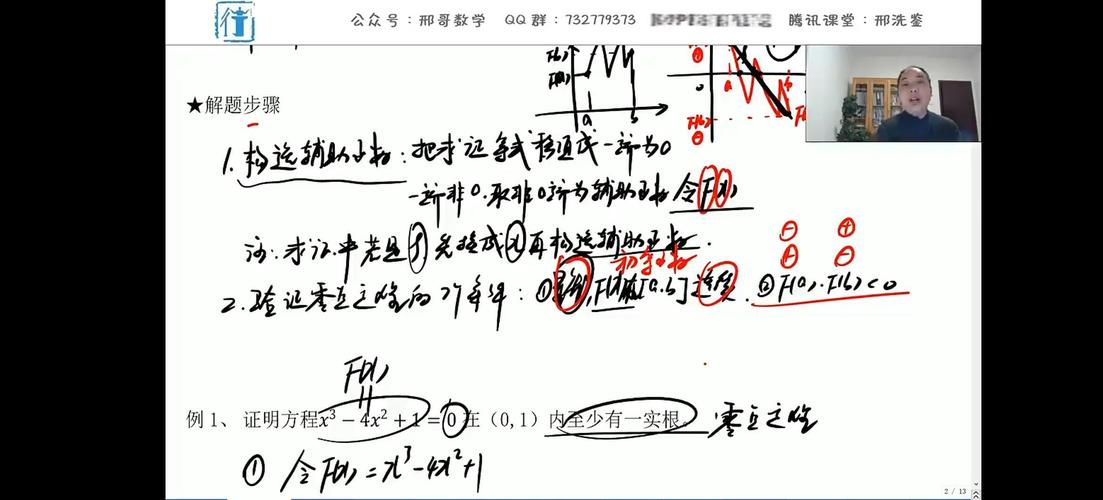 行 公众号：邢哥数学 QQ群：732779373 腾讯课堂：邢洗鉴
a b
a b
★解题步骤
1. 构造辅助函数：把求证等式移项成一端为0
一端非0.取非0端为辅助函数 令F(x)
注：求证中若是ξ先换成x再构造辅助函数.
初等函数
2. 验证零点定理的2个条件：① 显然, F(x)在[a,b]连续. ② F(a)·F(b)<0
F(x)
例 1、证明方程x³−4x²+1=0在（0,1）内至少有一实根。 零点定理
① 令F(x)=x³−4x²+1
2 / 13